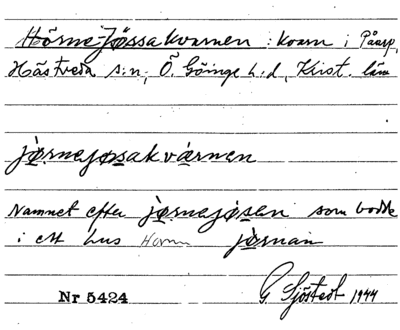 Hörne-Jössakvarnen : kvarn i Påarp,
Hästveda s:n, Ö. Göinge h.d, Krist. län
jø̀rnejøsakvárnen
Namnet efter jø̀rnejǿsen som bodde
i ett hus jø̀rnan
Nr 5424 G Sjöstedt 1944